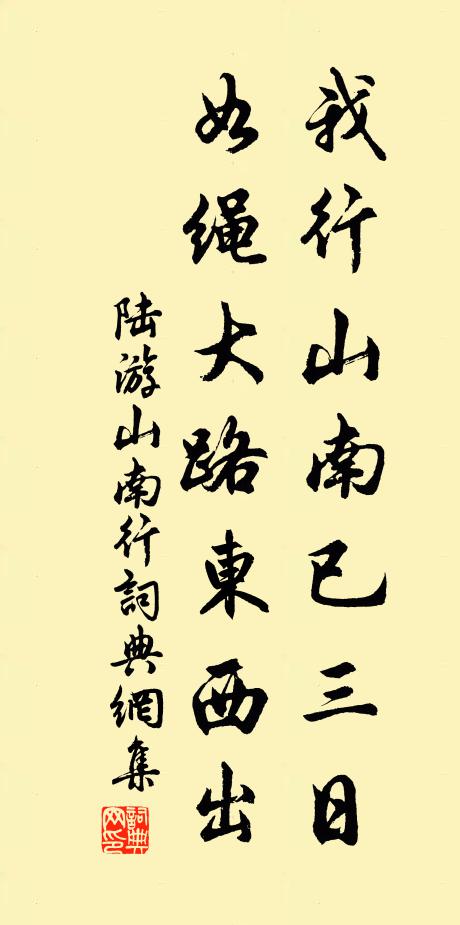 我行山南已三日
如绳大路東西出
陆游山南行詞典網集
詞典网印